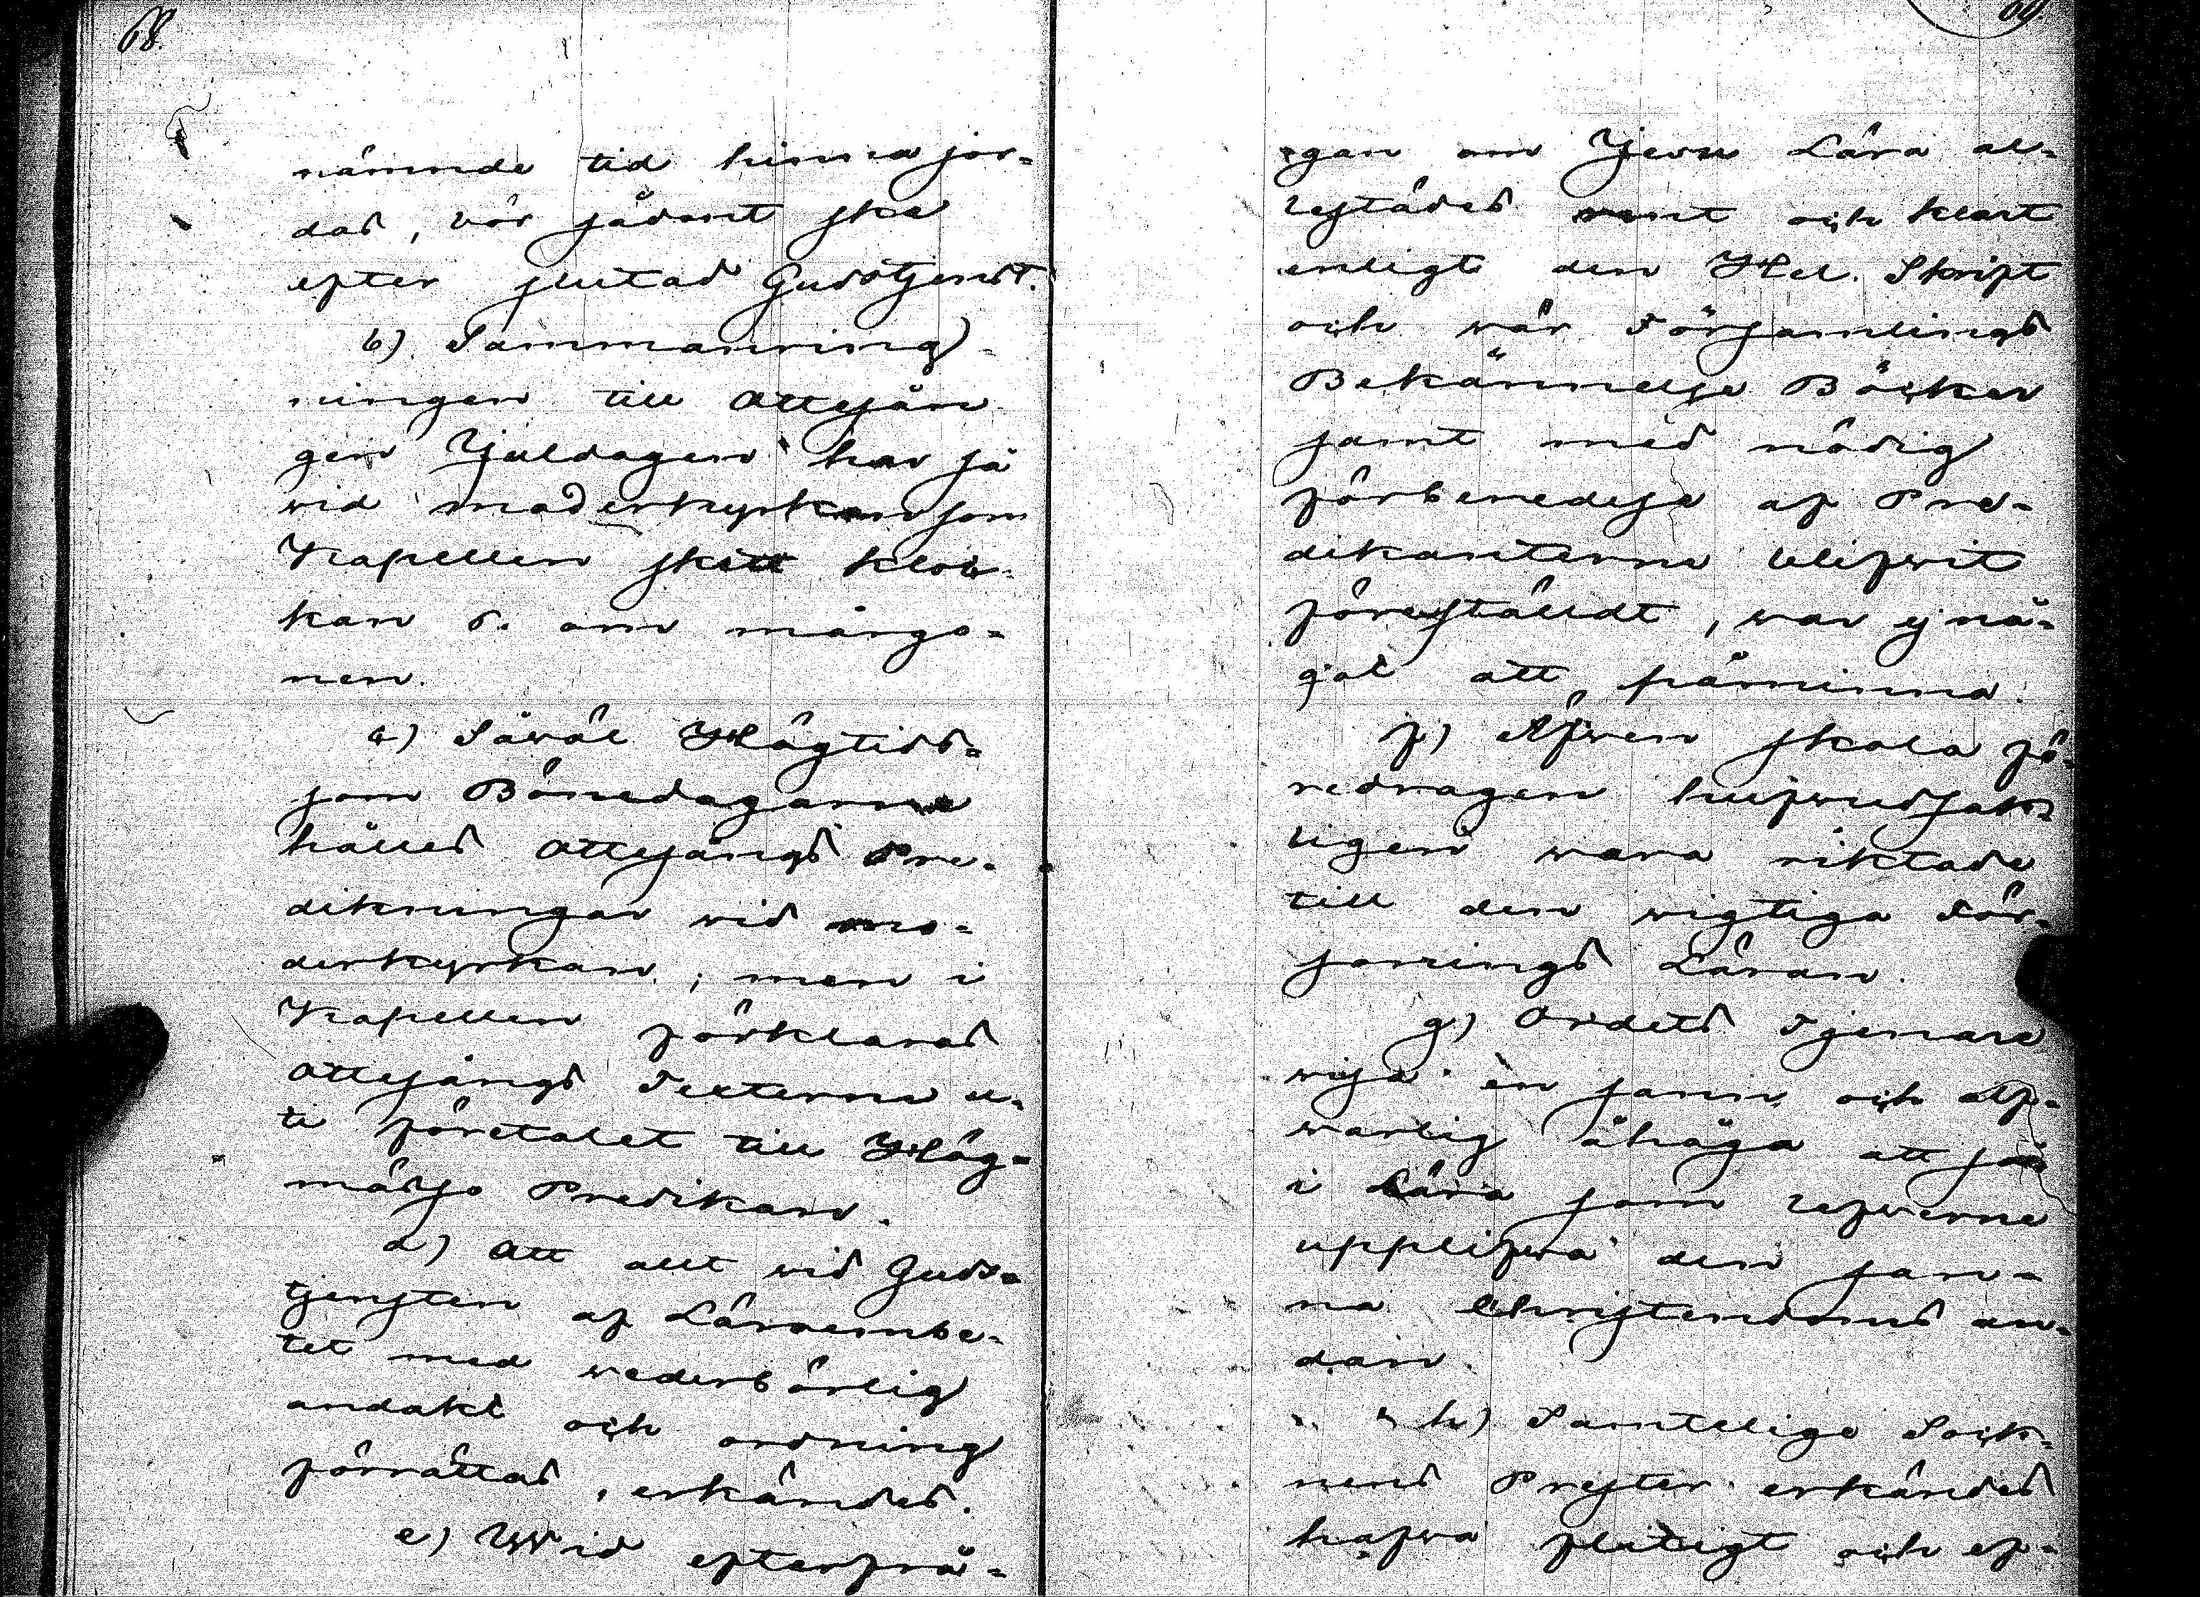 68.
nämnde tid hinna jor-
das, bör sådant ske
efter slutad Gudstjenst.
b) Sammanring-
ningen till Ottesån
gen Juldagen har så
vid moderkyrkan som
Kapellen skett kloc-
kan 5. om mårgo-
nen.
c) Såväl Högtids-
som Bönedagarne
hålles Ottesångs Pre-
dikningar vid mo-
derkyrkan; men i
Kapellen förklaras
Ottesångs Texterna u-
ti företalet till Hög-
mässo Predikan.
d) Att allt vid Guds-
tjensten af Läroembe-
tet med vederbörlig
andakt och ordning
förrättas, erkändes.
e) Wid efterfrå-
69.
gan om Jesu Lära al-
lestädes rent och klart
enligt den Hel. Skrift
och vår Församlings
Bekännelse Böcker
samt med nödig
förberedelse af Pre-
dikanterna blifwit
föreställdt, war ej nå-
got att påminna.
f) Äfwen skola fö-
redragen hufwudsak-
ligen wara riktade
till den wigtiga För-
sonings Läran.
g) Ordets Tjenare
wisa en sann och alf-
warlig åhåga att så
i Lära som lefwerne
upplifwa den san-
na Christendoms an-
dan.
h) Samtelige Sock-
nens Prester erkändes
hafwa flitigt och ef-